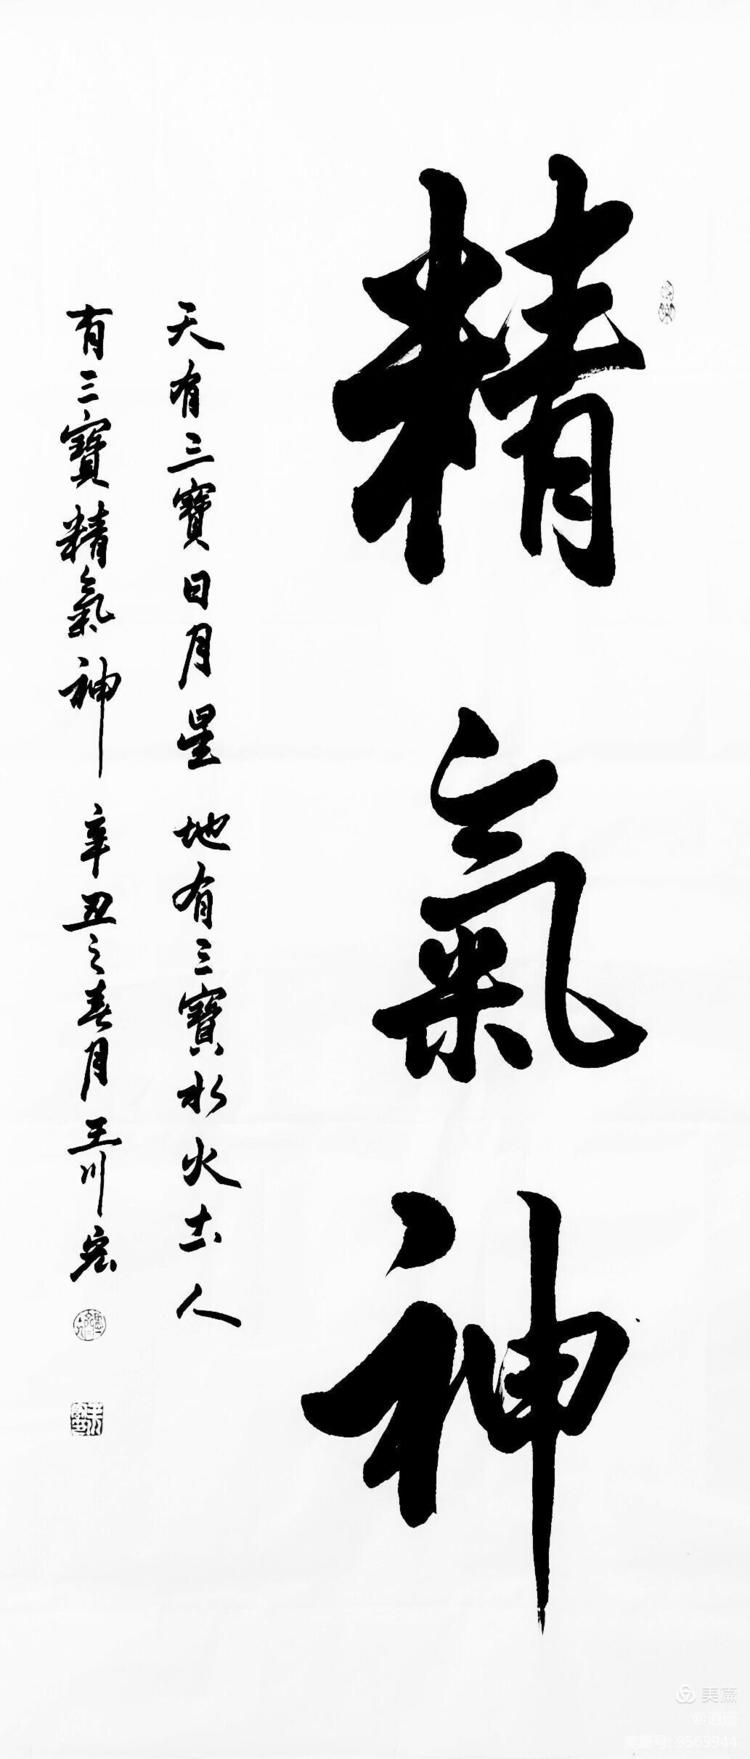 精氣神
天有三寶日月星地有三寶水火土人
有三寶精氣神辛丑之春月王川宏
美篇